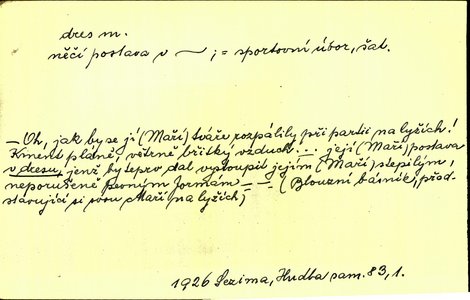 dres m.
něčí postava v ~ ; = sportovní úbor, šat.
— Oh, jak by se jí (Maři) tváře rozpálily při partii na lyžích!
pláně, větrně břitký vzduch... její (Maří) postava
v dresu, jenž by teprv dal vystoupit jejím (Maří) štěpilým,
neporušeně pevným formám — — (Blouzní básník, před-
stavující si svou Maří na lyžích)
1926 Sezima, Hudba sam. 83, 1.